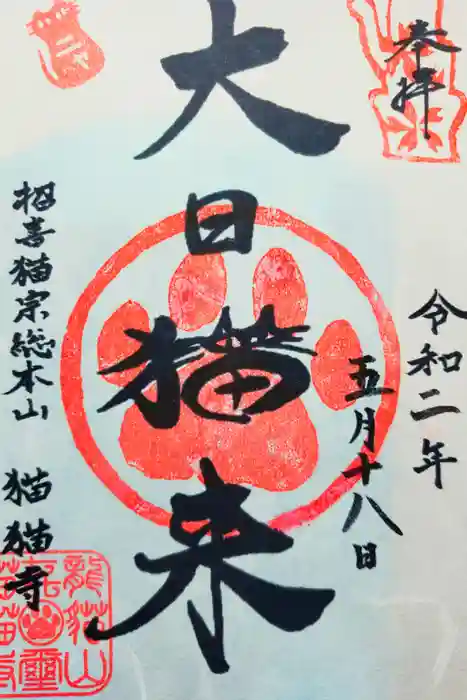 奉拝
令和二年
五月十八日
大日猫来
招喜猫宗総本山 猫猫寺